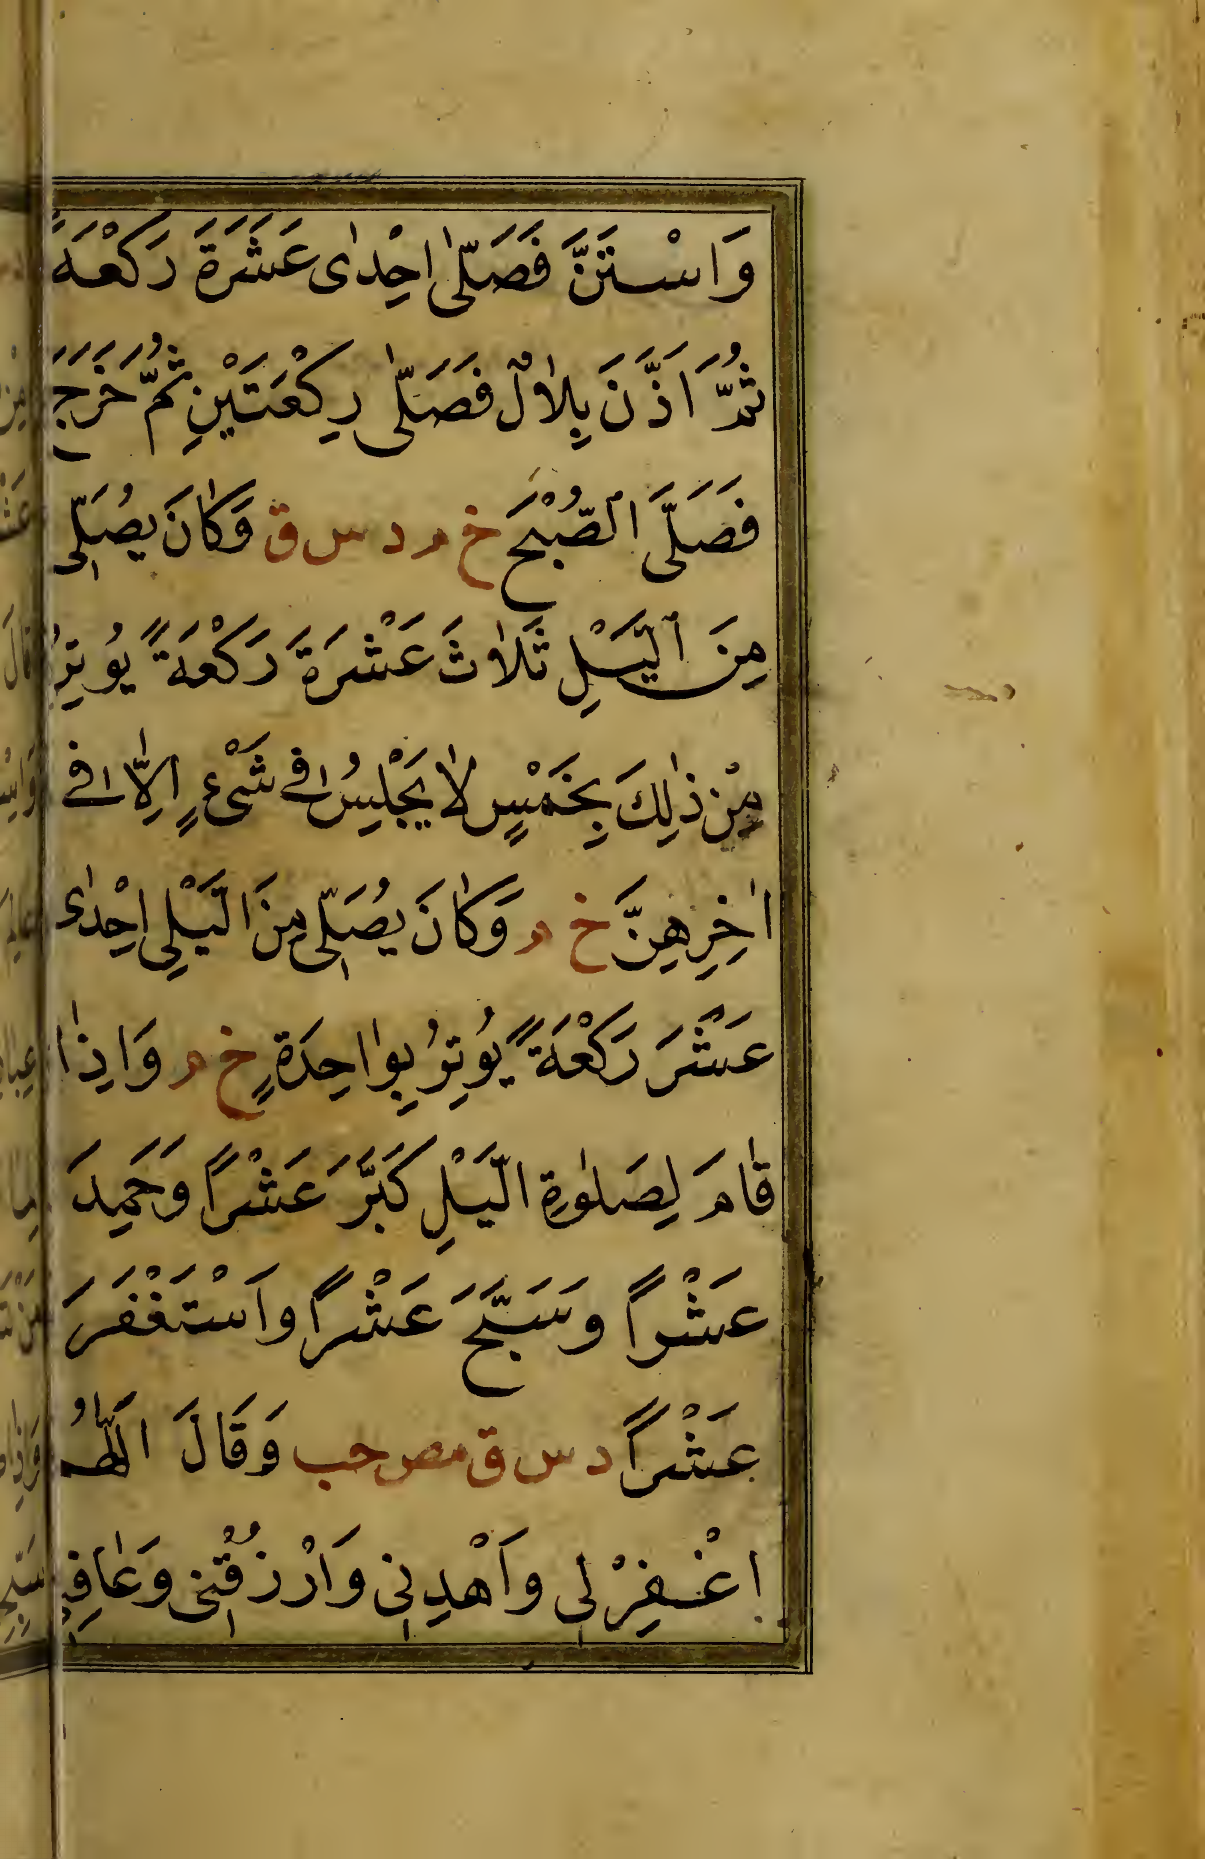 وَاسْتَنَّ فَصَلّٰى اِحْدٰى عَشَرَةَ رَكْعَةً
ثُمَّ اَذَّنَ بِلَالٌ فَصَلّٰى رَكْعَتَيْنِ ثُمَّ خَرَجَ
فَصَلَّى الصُّبْحَ خ م د س ق وَكَانَ يُصَلِّى
مِنَ اللَّيْلِ ثَلَاثَ عَشْرَةَ رَكْعَةً يُوتِرُ
مِنْ ذٰلِكَ بِخَمْسٍ لَا يَجْلِسُ فِى شَىْءٍ اِلَّا فِى
اٰخِرِهِنَّ خ م وَكَانَ يُصَلِّى مِنَ اللَّيْلِ اِحْدٰى
عَشَرَ رَكْعَةً يُوتِرُ بِوَاحِدَةٍ خ م وَاِذَا
قَامَ لِصَلٰوةِ اللَّيْلِ كَبَّرَ عَشْرًا وَحَمِدَ
عَشْرًا وَسَبَّحَ عَشْرًا وَاسْتَغْفَرَ
عَشْرًا د س ق مص حب وَقَالَ اَللّٰهُمَّ
اِغْفِرْ لِى وَاهْدِنِى وَارْزُقْنِى وَعَافِنِى